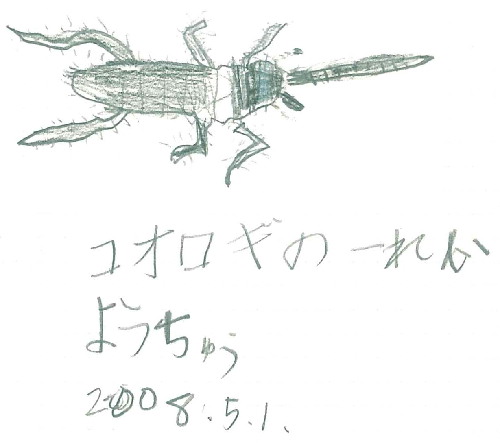 コオロギの一れか
ようちゅう
2008.5.1.